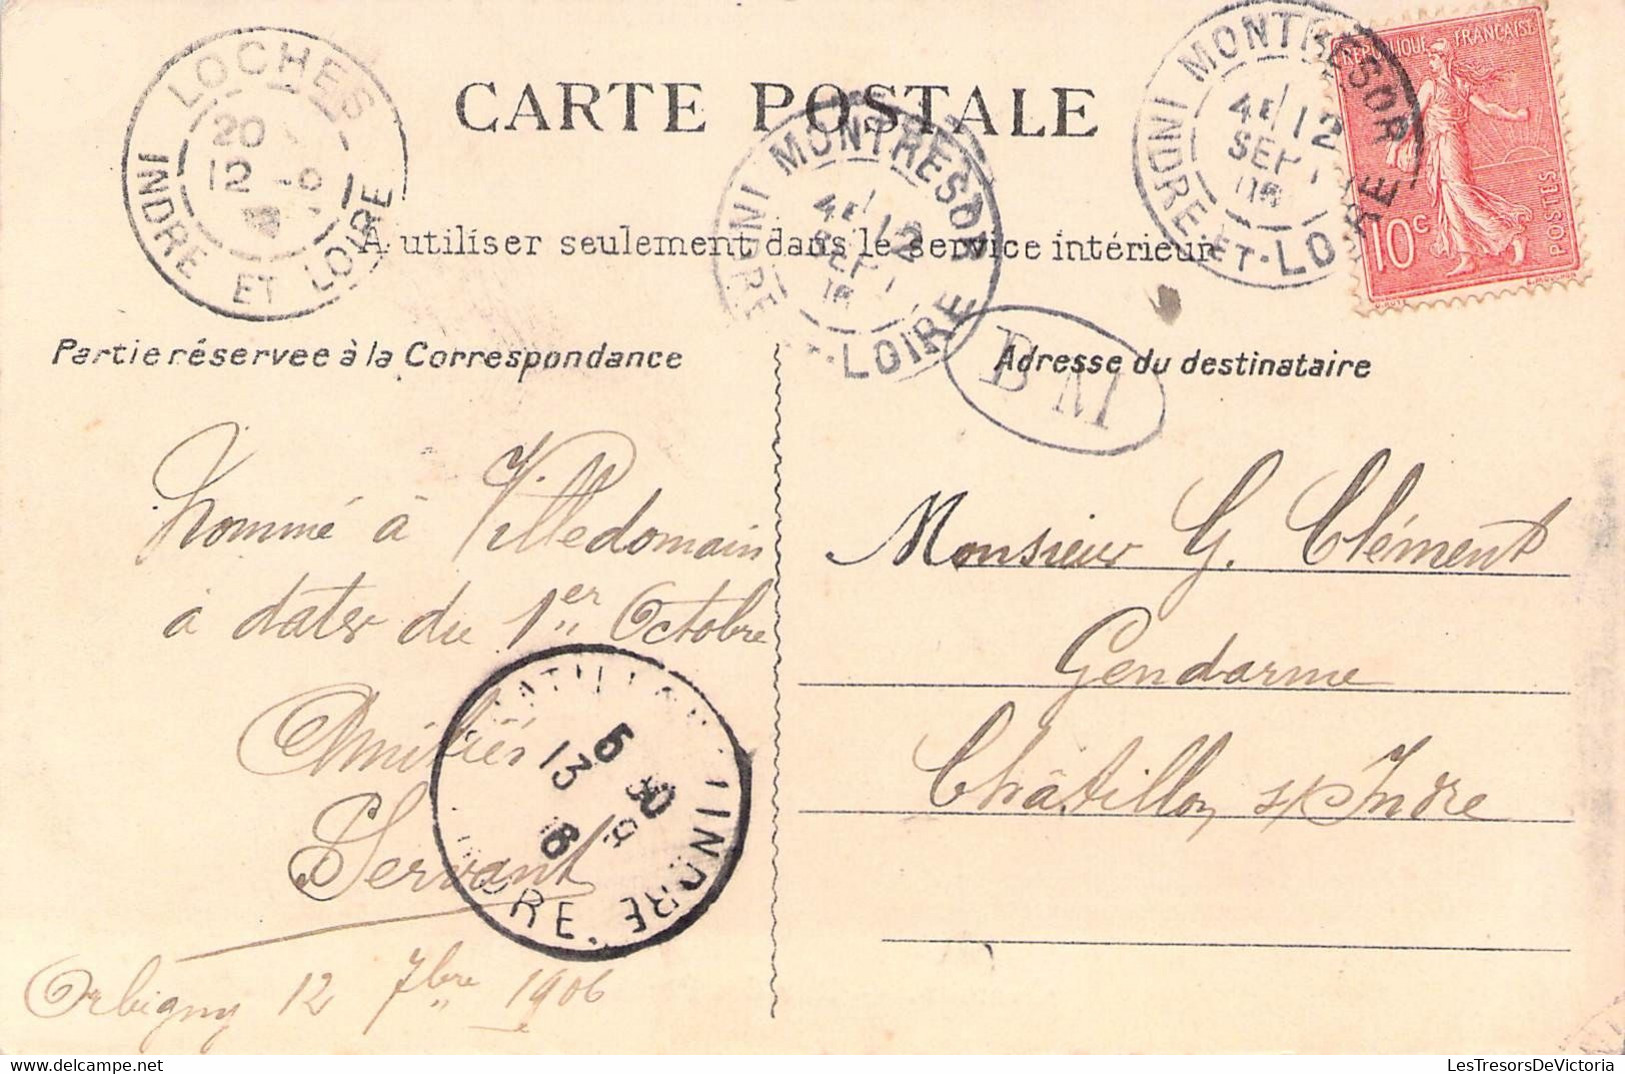 CARTE POSTALE
A utiliser seulement dans le service intérieur
LOCHES
20
12 -9
INDRE ET LOIRE
MONTRESOR
4E/12
SEPT
06
INDRE-ET-LOIRE
MONTRESOR
4E/12
SEPT
06
INDRE-ET-LOIRE
REPUBLIQUE FRANÇAISE
10c
POSTES
BM
Partie réservee à la Correspondance
Adresse du destinataire
Nommé à Villedomain
à dater du 1er Octobre
Amitiés
Servant
Orbigny 12 7bre 1906
CHATILLON
5 30
13 9
06
INDRE
INDRE
Monsieur G. Clément
Gendarme
Châtillon s/Indre
LesTresorsDeVictoria